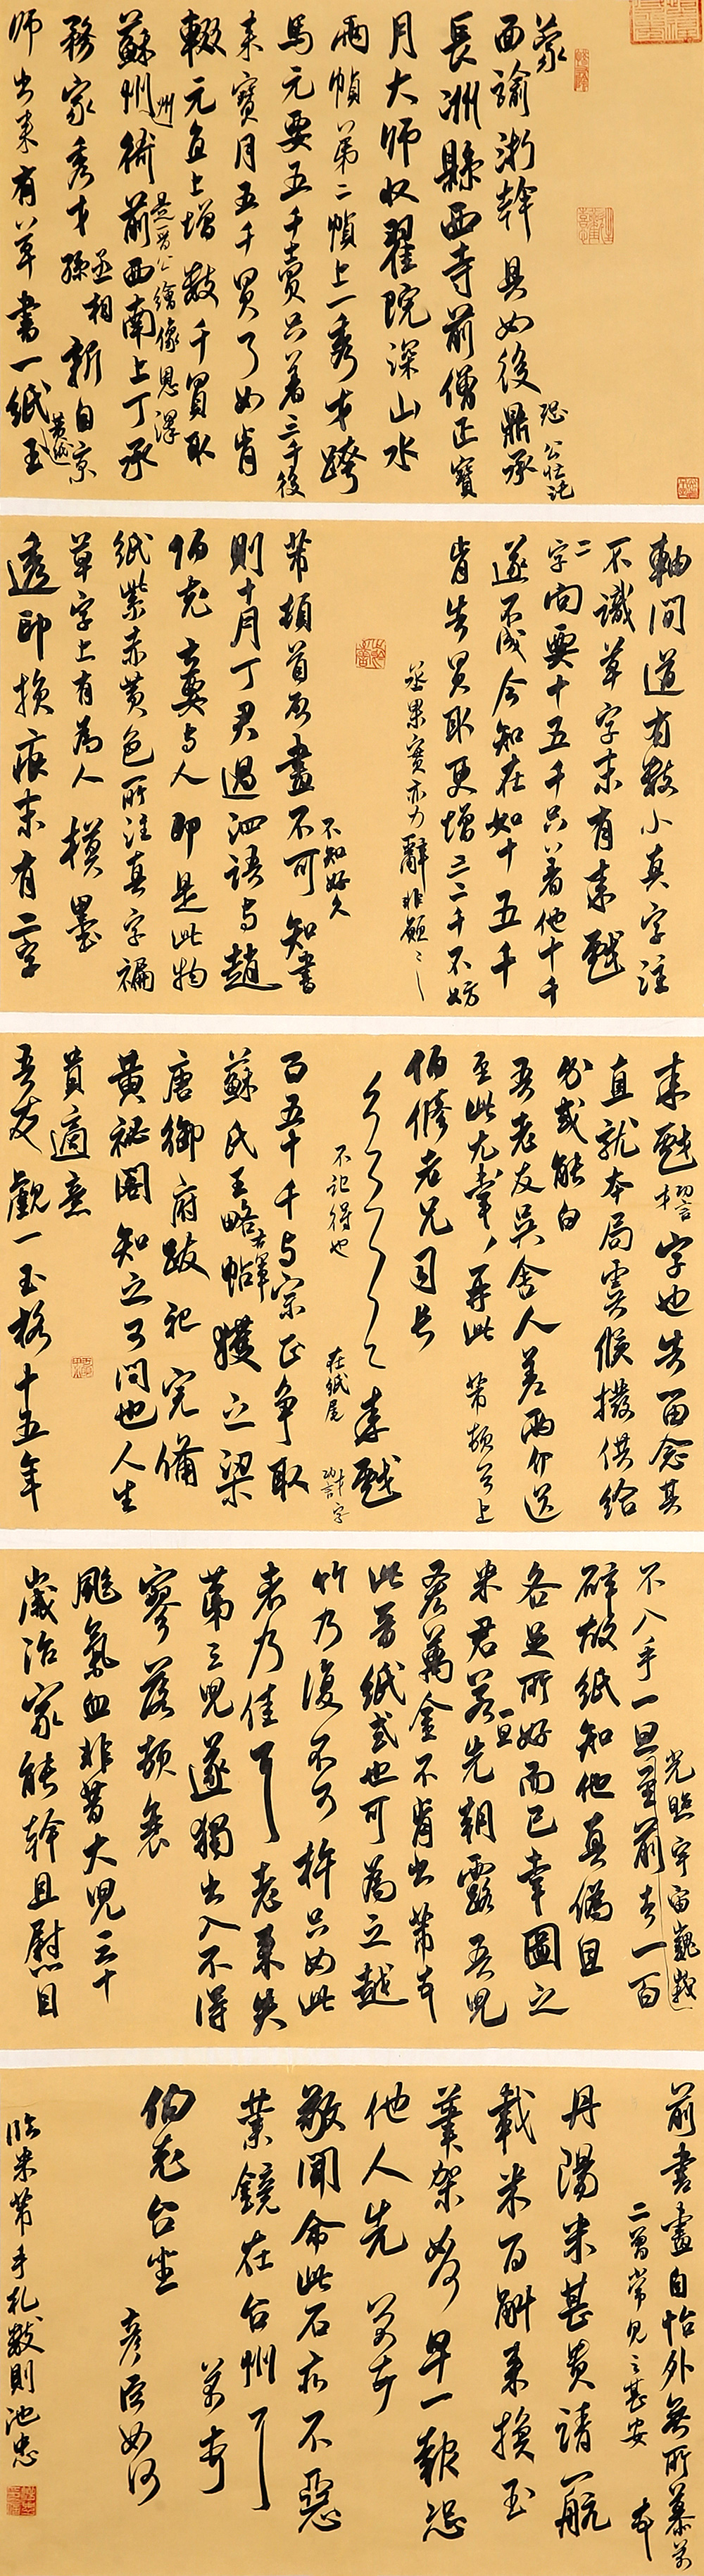 蒙
面諭浙幹 具如後鼎承
恐公壯訖
長洲縣西寺前僧正寶
月大師收翟院深山水
兩幀第二幀上一秀才跨
馬元要五千賣只著三千後
來寶月五千買了如肯
輟元直上增數千買取
蘇州州衙前西南上丁承
是晉公繪像恩澤
務家秀才孫丞相新自京
師出來有草書一紙玉
黃越
軸間道有數小真字注
不識草字末有來戲
二字向要十五千只著他十千
遂不成今知在如十五千
肯告買取更增三二千不妨
丞果實亦力辭非願
芾頓首啓畫不可知書
不知好久
則十月丁君過泗語與趙
伯充云要與人即是此物
紙紫赤黃色所注真字褊
草字上有為人模墨
透印損痕末有二字
來戲字也告留念其
直就本局虞候撥供給
分或能白
吾老友吳舍人差兩介送
至此尤幸再此 芾頓首上
伯修老兄司長
來戲
不記得也
在紙尾
百五十千與宗正爭取
蘇氏王略帖右軍獲之梁
唐御府跋記完備
黃秘閣知之可問也人生
貴適意
吾友觀一玉格十五年
不入手一旦至前去一百
光照宇宙巍峩
碎故紙知他真偽且
各足所好而已幸圖之
米君若一旦先朝露吾兒
吝萬金不肯出芾本
此晉紙式也可為之越
竹乃復不可杵只如此
者乃佳耳 老來失
第三兒遂獨出入不得
寥落頹衰
颷氣血非昔大兒三十
歲治家能幹且慰目
前書畫自怡外無所慕芾
二曾常見之甚安
丹陽米甚貴請一航
載米百斛來換玉
筆架如何早一報恐
他人先 芾頓首
敬聞命此石亦不惡
業鏡在台州耳 芾頓首
伯充台坐
彥臣如何
臨米芾手札數則池忠